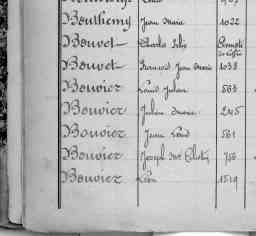 Bouthemy Jean Marie 1022
Bouvet Charles Félix Compte
Bouvet François Jean Marie 1038
Bouvier Louis Julien 563
Bouvier Julien Marie 245
Bouvier Jean Louis 561
Bouvier Joseph Mie 756
Bouvier Léon 1519